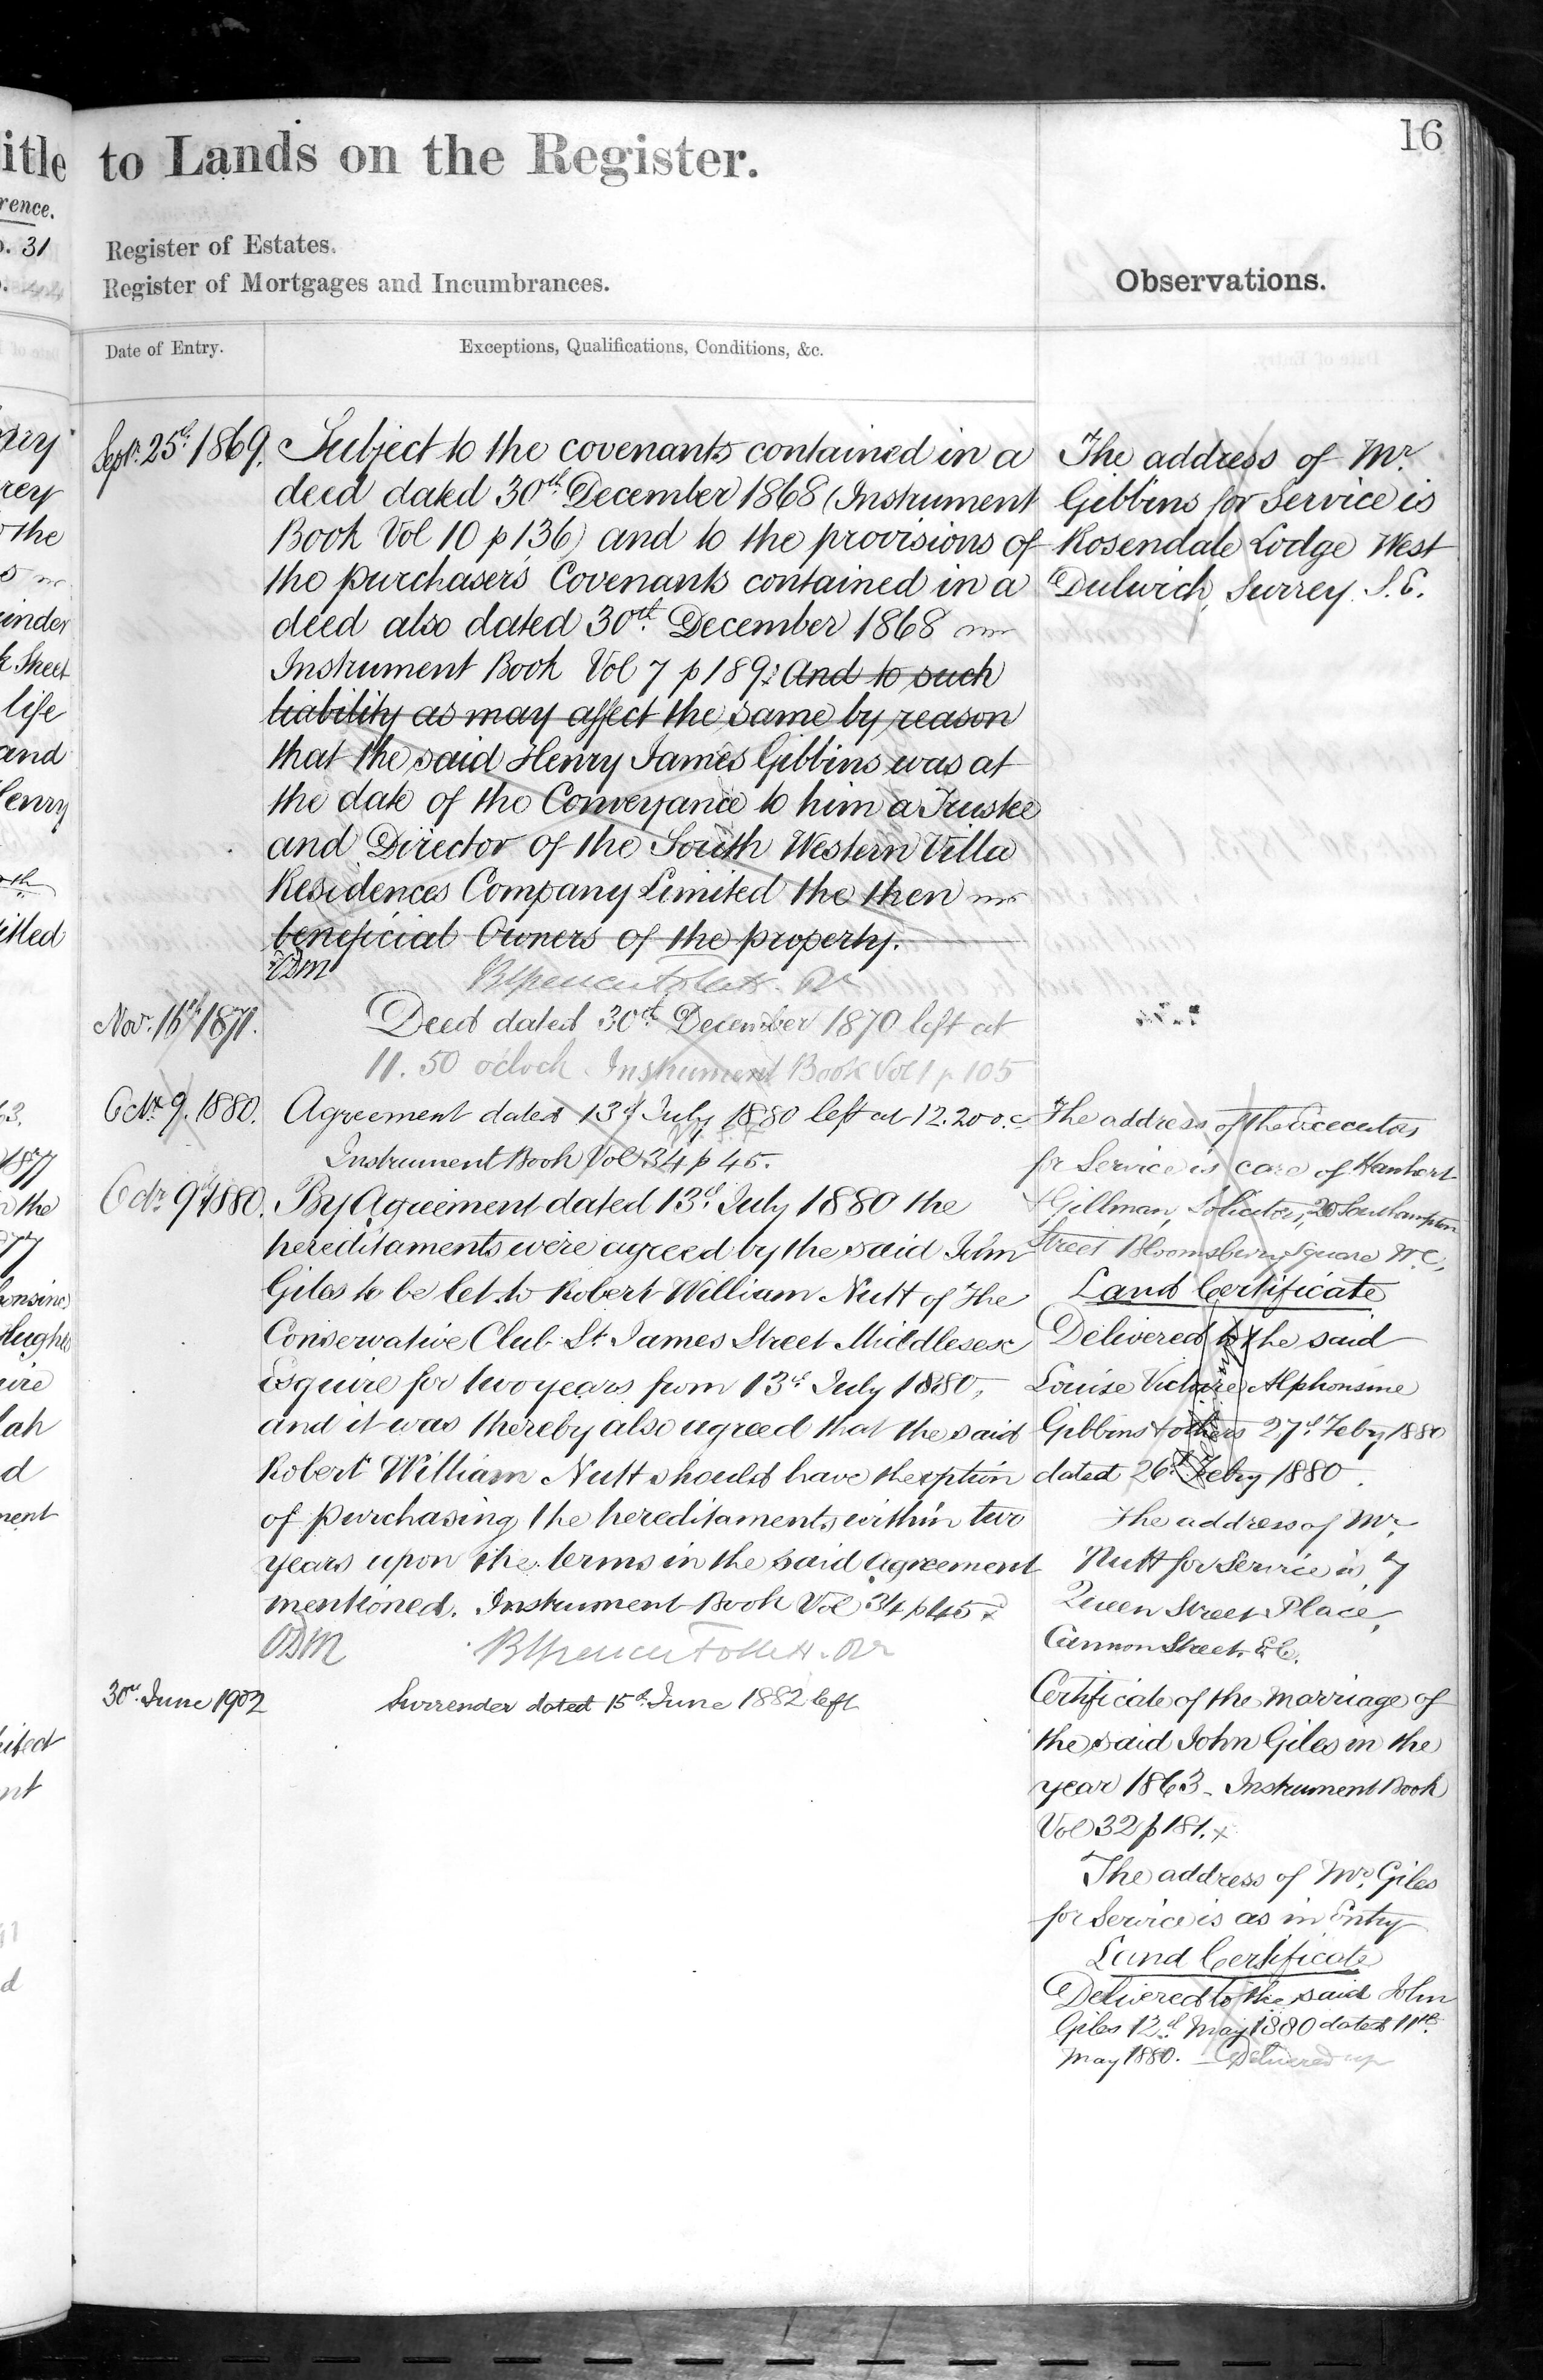 itle to Lands on the Register.
16
rence.
31
Register of Estates.
Register of Mortgages and Incumbrances.
Observations.
Date of Entry.
Exceptions, Qualifications, Conditions, &c.
Sepr. 25th 1869.
Subject to the covenants contained in a
deed dated 30th December 1868 (Instrument
Book Vol 10 p 136) and to the provisions of
the purchasers Covenants contained in a
deed also dated 30th December 1868
Instrument Book Vol 7 p 189: And to such
liability as may affect the same by reason
that the said Henry James Gibbins was at
the date of the Conveyance to him a Trustee
and Director of the South Western Villa
Residences Company Limited the then
beneficial Owners of the property.
Nov. 16th 1871.
Deed dated 30th December 1870 left at
11.50 o'clock Instrument Book Vol 1 p 105
Octr. 9. 1880.
Agreement dated 13th July 1880 left at 12.20 o.c.
Instrument Book Vol 34 p 45.
Octr 9th 1880.
By Agreement dated 13th July 1880 the
hereditaments were agreed by the said John
Giles to be let to Robert William Nutt of the
Conservative Club St. James Street Middlesex
Esquire for two years from 13th July 1880,
and it was thereby also agreed that the said
Robert William Nutt should have the option
of purchasing the hereditaments within two
years upon the terms in the said Agreement
mentioned. Instrument Book Vol 34 p 45 x
30th June 1902
Surrender dated 15th June 1882 left
The address of Mr.
Gibbins for Service is
Rosendale Lodge West
Dulwich, Surrey. S.E.
The address of the Executors
for Service is care of Hanhart
& Gillman, Solicitors, 20 Southampton
Street Bloomsbury Square W.C.
Land Certificate
Delivered to the said
Louise Victoire Alphonsine
Gibbins & others 27th Feby 1880
dated 26th Feby 1880.
The address of Mr.
Nutt for Service is 7
Queen Street Place,
Cannon Street. E.C.
Certificate of the marriage of
the said John Giles in the
year 1863 - Instrument Book
Vol 32 p 181. x
The address of Mr. Giles
for Service is as in Entry
Land Certificate
Delivered to the said John
Giles 12th May 1880 dated 11th
May 1880. — Delivered up